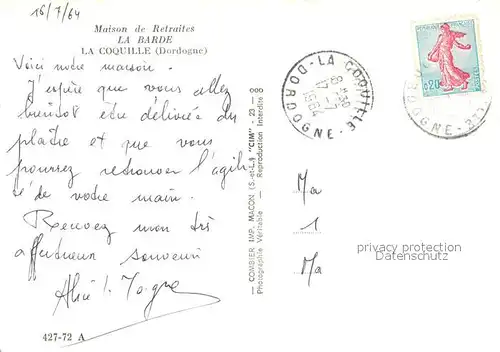 16/7/64
Maison de Retraites
LA BARDE
LA COQUILLE (Dordogne)
Voici notre maison.
J'espère que vous allez
bientôt être délivrée du
plâtre et que vous
pourrez retrouver l'agili-
té de votre main.
Recevez mon très
affectueux souvenir
427-72 A
— COMBIER IMP. MACON (S.-et-L.) "CIM" - 23 - 88
Photographie Véritable - Reproduction Interdite
LA COQUILLE
8 H 30
17-7
1964
DORDOGNE
0,20
DORDOGNE
Ma
1
Ma
privacy protection
Datenschutz